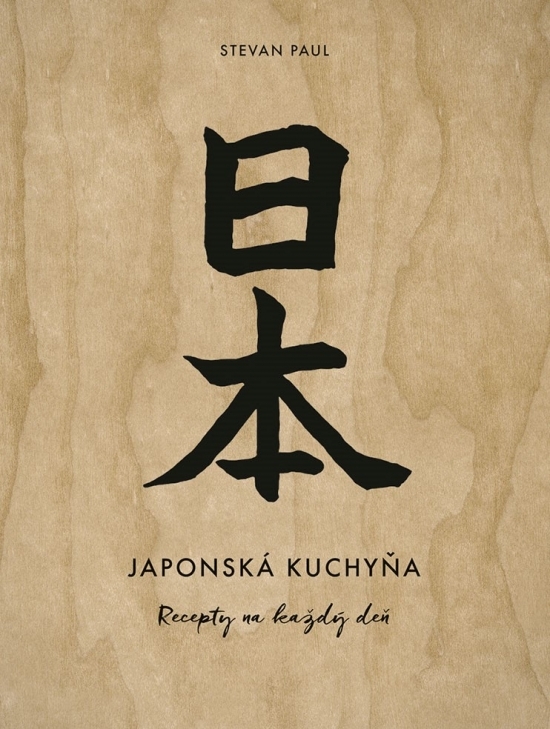 STEVAN PAUL
日
本
JAPONSKÁ KUCHYŇA
Recepty na každý deň